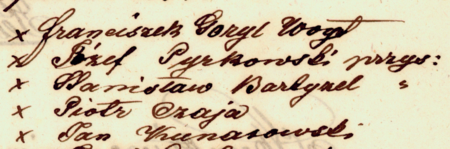 x Franciszek Goryl Wojt
x Józef Pyrkowski przys:
x Stanisław Barbyzel "
x Piotr Czaja
x Jan Kunasowski